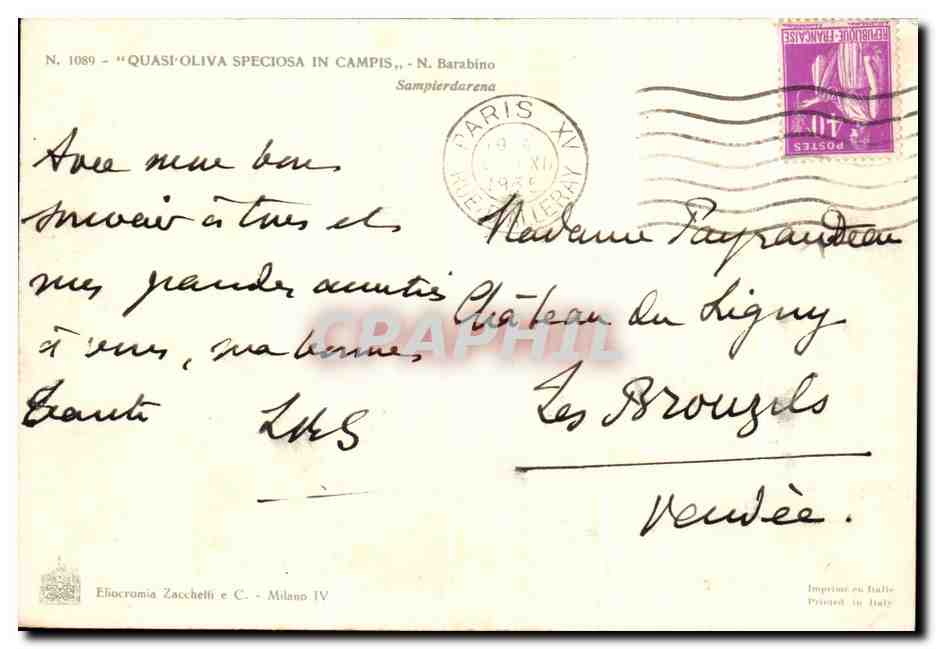 N. 1089 - "QUASI OLIVA SPECIOSA IN CAMPIS,, - N. Barabino
Sampierdarena
RÉPUBLIQUE-FRANÇAISE
40c
POSTES
PARIS XV
19
XII
RUE
LERAY
Avec mon bon
souvenir à tous et
mes grandes amitiés
à vous, ma bonne
Tante
Madame Payraudeau
Château du Ligny
Les Brouzils
Vendée.
CPAPHIL
Eliocromia Zacchetti e C. - Milano IV
Imprimé en Italie
Printed in Italy